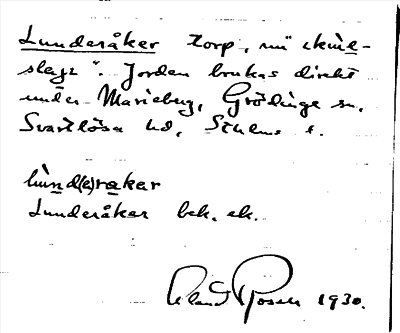 Lunderåker torp, nu "skinn-
slagt". Jorden brukas direkt
under Marieberg, Grödinge sn.
Svartlösa hd, Sthlms l.
lùnd(e)rakar
Lunderåker bek. ek.
Roland Rosell 1930.